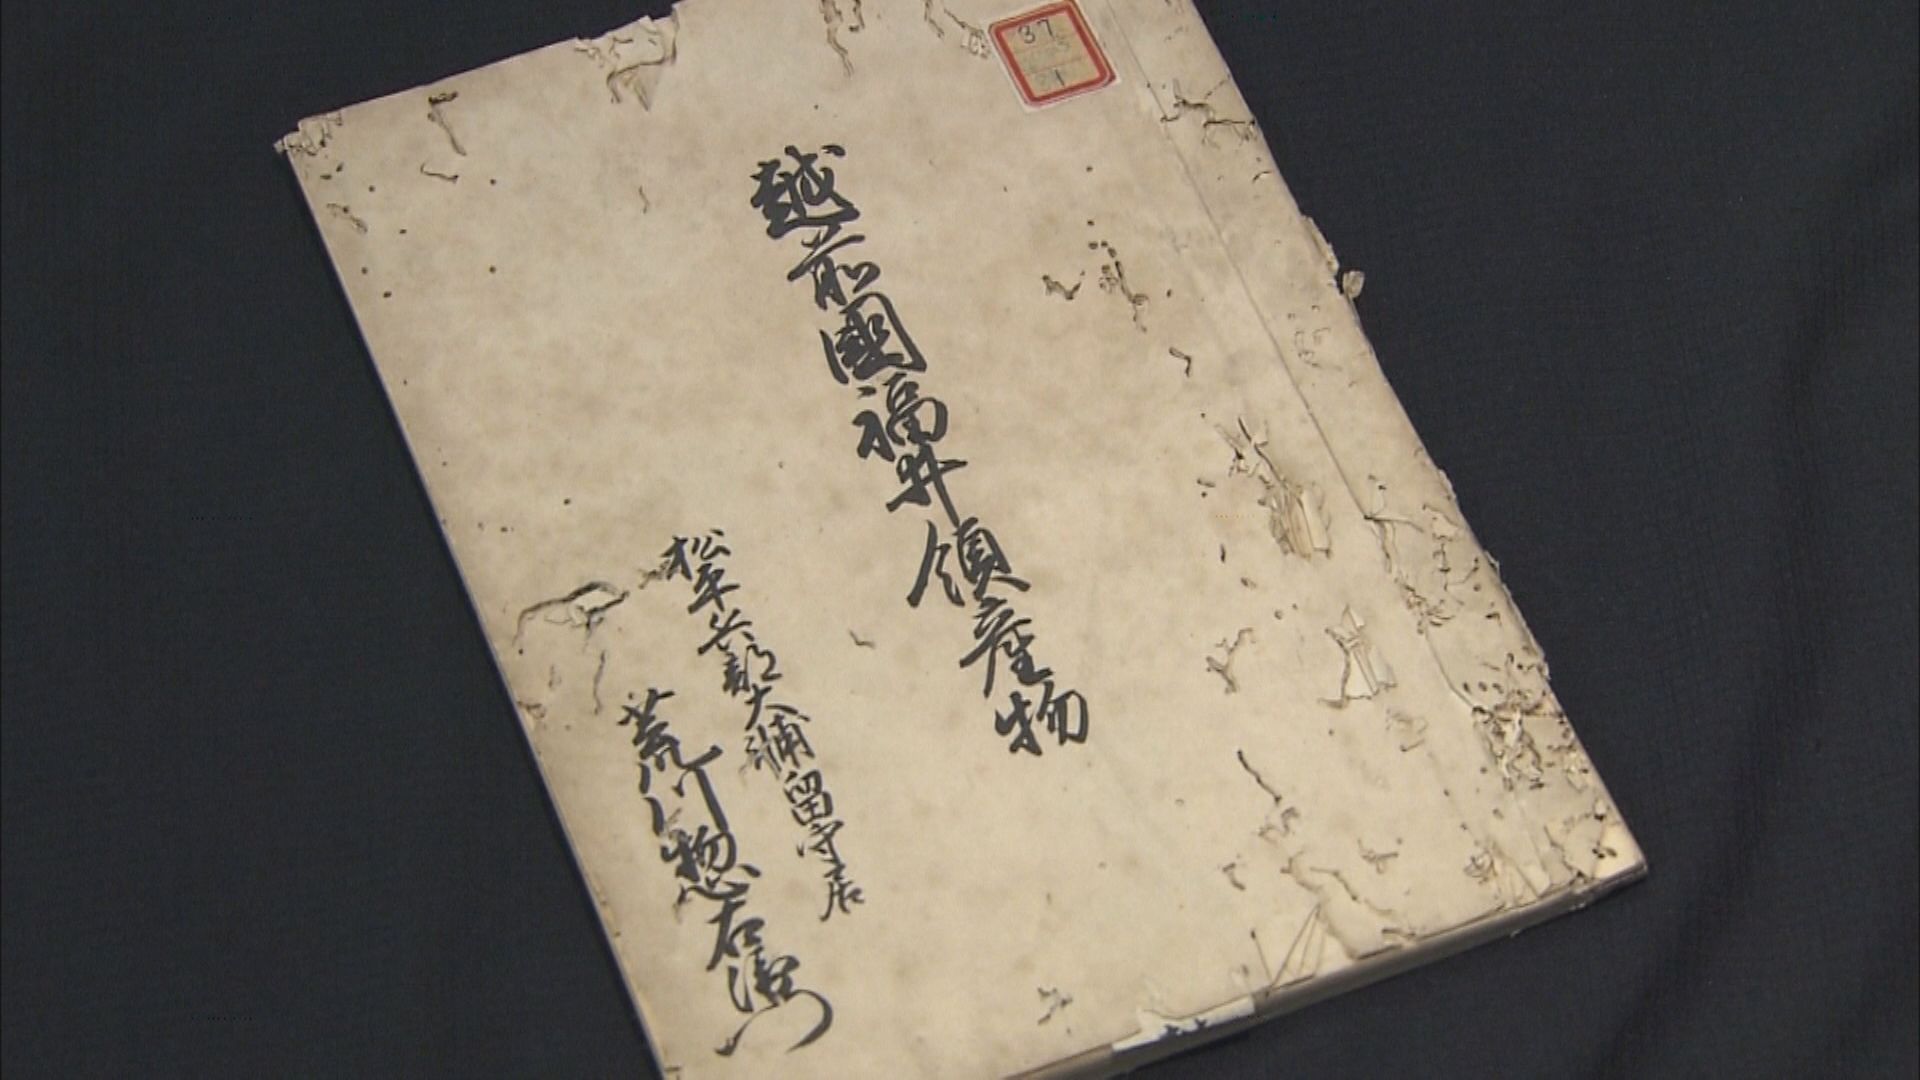 越前國福井領産物
松平兵部大輔留守居
荒川惣右衛門
37